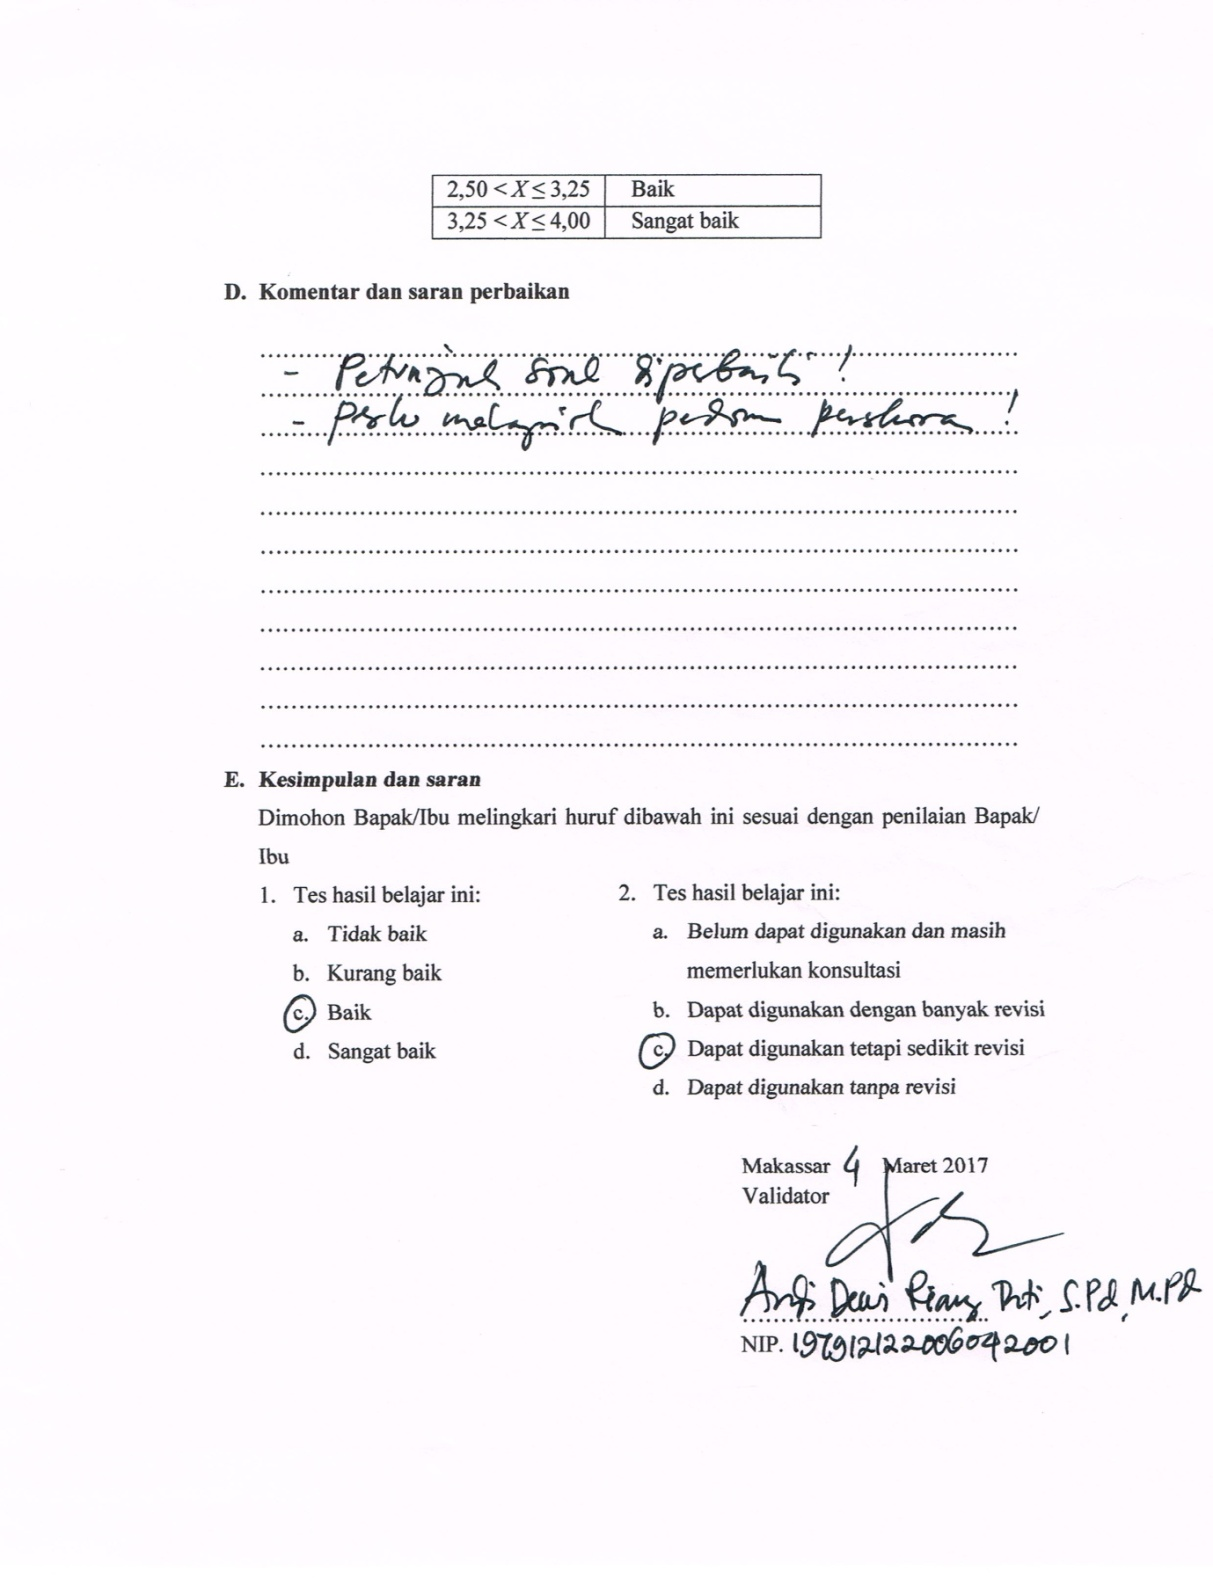 2,50 < X ≤ 3,25 Baik
3,25 < X ≤ 4,00 Sangat baik
D. Komentar dan saran perbaikan
- Petunjuk soal diperbaiki !
- Perlu pedom perskora !
E. Kesimpulan dan saran
Dimohon Bapak/Ibu melingkari huruf dibawah ini sesuai dengan penilaian Bapak/
Ibu
1. Tes hasil belajar ini:
a. Tidak baik
b. Kurang baik
c. Baik
d. Sangat baik
2. Tes hasil belajar ini:
a. Belum dapat digunakan dan masih
memerlukan konsultasi
b. Dapat digunakan dengan banyak revisi
c. Dapat digunakan tetapi sedikit revisi
d. Dapat digunakan tanpa revisi
Makassar 4 Maret 2017
Validator
Andi Dewi Riang Tati, S.Pd, M.Pd
NIP. 197912122006042001